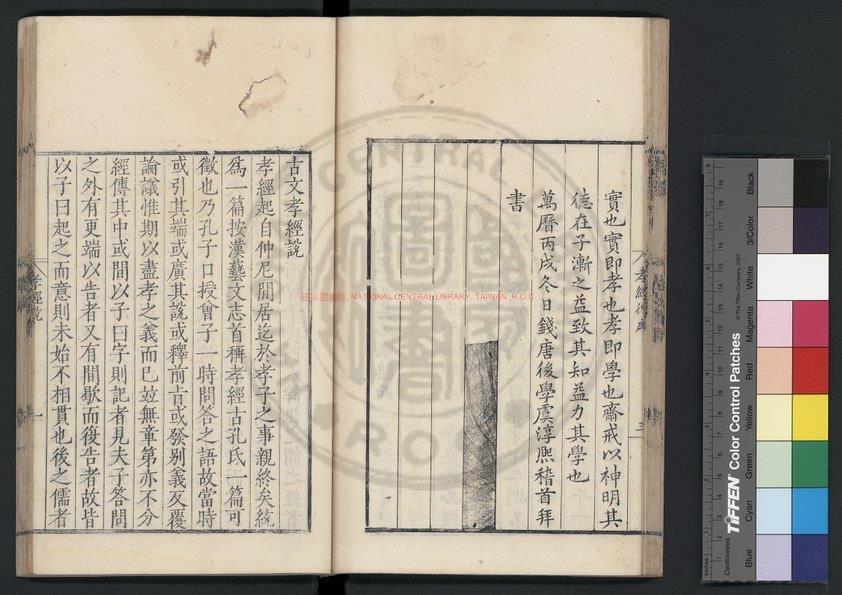 實也實即孝也孝即學也齋戒以神明其
德在子漸之益致其知益力其學也
萬曆丙戌冬日錢唐後學虞淳熙稽首拜
書
古文孝經說
孝經起自仲尼閒居迄於孝子之事親終矣統
爲一篇按漢藝文志首稱孝經古孔氏一篇可
徵也乃孔子口授曾子一時問答之語故當時
或引其端或廣其說或釋前旨或發别義反覆
論議惟期以盡孝之義而已竝無章第亦不分
經傳其中或間以子曰字則記者見夫子答問
之外有更端以告者又有間歇而復告者故皆
以子曰起之而意則未始不相貫也後之儒者
孝經說
國家圖書館, NATIONAL CENTRAL LIBRARY, TAIWAN, R.O.C.
NATIONAL CENTRAL LIBRARY
R.O.C.
TIFFEN Color Control Patches
© The Tiffen Company, 2007
Centimetres
Inches
Blue
Cyan
Green
Yellow
Red
Magenta
White
3/Color
Black